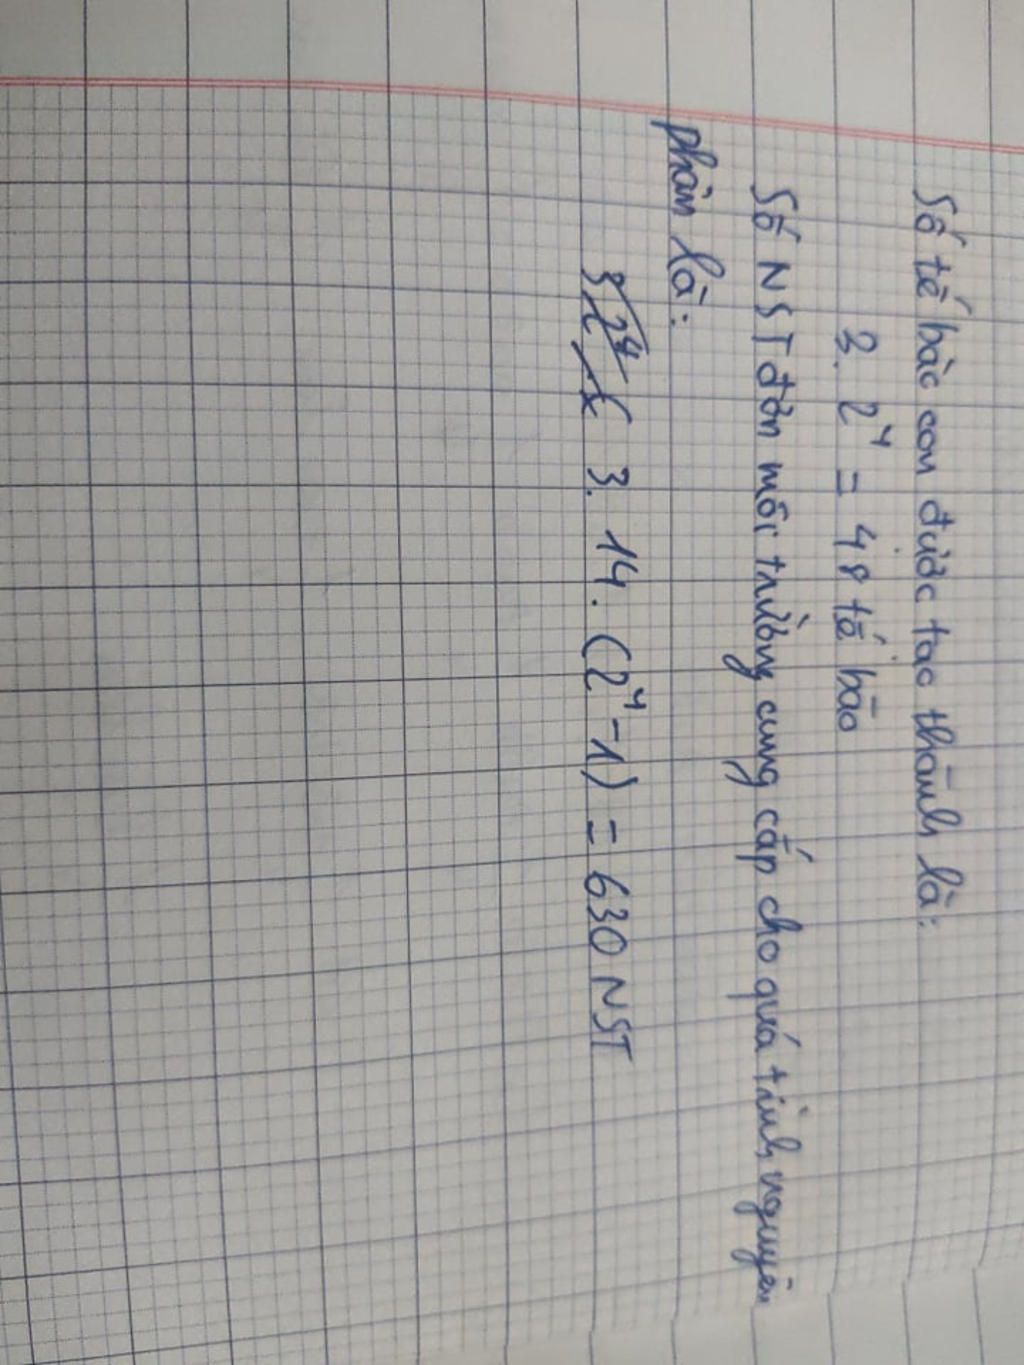 Số tế bào con được tạo thành là:
3. 2⁴ = 48 tế bào
Số NST đơn môi trường cung cấp cho quá trình nguyên
phân là:
3. 14. (2⁴ - 1) = 630 NST